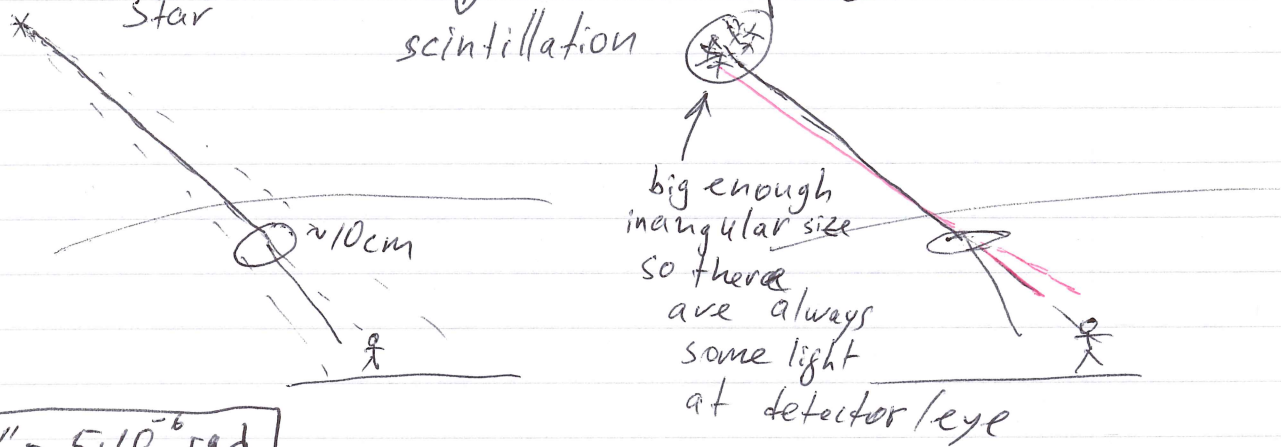 Star
scintillation
~10cm
big enough
inangular size
so there
are always
some light
at detector/eye
1" ~ 5·10⁻⁶ rad